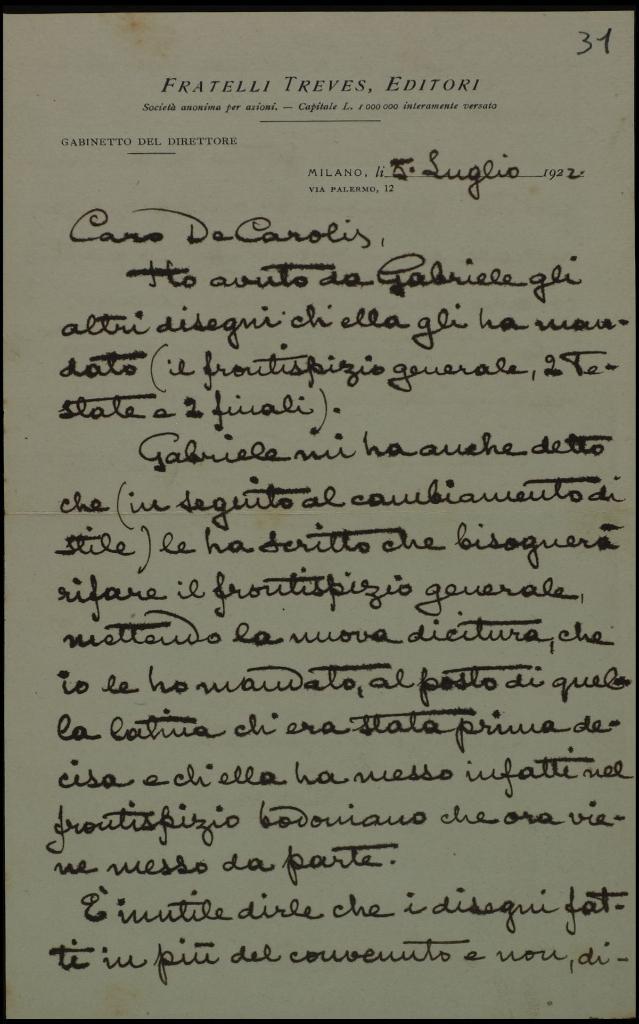 31
FRATELLI TREVES, EDITORI
Società anonima per azioni. — Capitale L. 1 000 000 interamente versato
GABINETTO DEL DIRETTORE
MILANO, li 5. Luglio 1922.
VIA PALERMO, 12
Caro De Carolis,
Ho avuto da Gabriele gli
altri disegni ch'ella gli ha man-
dato (il frontispizio generale, 2 Te-
state e 2 finali).
Gabriele mi ha anche detto
che (in seguito al cambiamento di
stile) le ha scritto che bisognerà
rifare il frontispizio generale,
mettendo la nuova dicitura, che
io le ho mandato, al posto di quel-
la latina ch'era stata prima de-
cisa e ch'ella ha messo infatti nel
frontispizio bodoniano che ora vie-
ne messo da parte.
È inutile dirle che i disegni fat-
ti in più del convenuto e non, di-